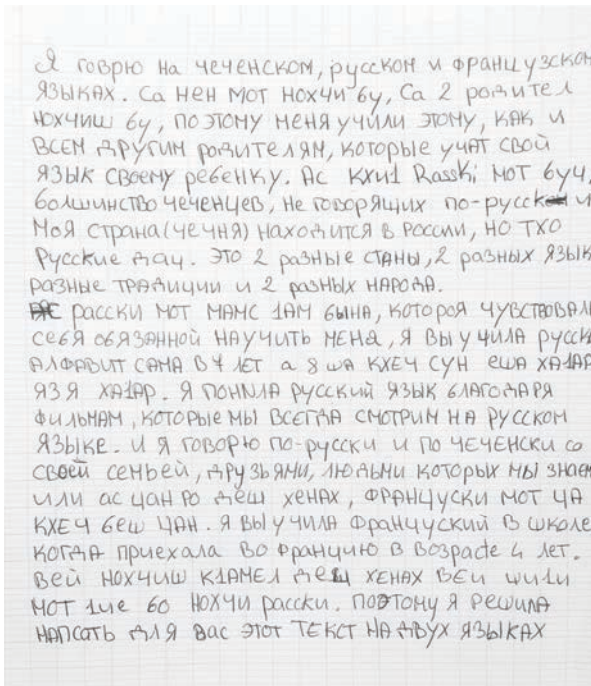 Я говрю на чеченском, русском и французском
языках. Са нен мот нохчи бу, Са 2 родител
нохчиш бу, поэтому меня учили этому, как и
всем другим родителям, которые учат свой
язык своему ребенку. Ас кхи1 Rasski мот буч,
болшинство чеченцев, не говорящих по-русск и
Моя страна (чечня) находится в России, но тхо
Русские дац. Это 2 разные станы, 2 разных язык
разные традиции и 2 разных народа.
расски мот мамс 1ам бына, которя чувствовал
себя обязанной научить меня, я выучила русск
алфавит сама в 7 лет а 8 ша кхеч сун еша ха1ар
язя ха1ар. Я поняла русский язык благодаря
фильмам, которые мы всегда смотрим на русском
языке. И я говорю по-русски и по чеченски со
своей семьей, друзьями, людьми которых мы знаем
или ас цан ро деш хенах, француски мот ца
кхеч беш цан. Я выучила француский в школе
когда приехала во францию в возраcde 4 лет.
Вей нохчиш к1амел деш хенах вей ши1и
мот 1ие бо нохчи расски. Поэтому я решила
напсать для вас этот текст на двух языках